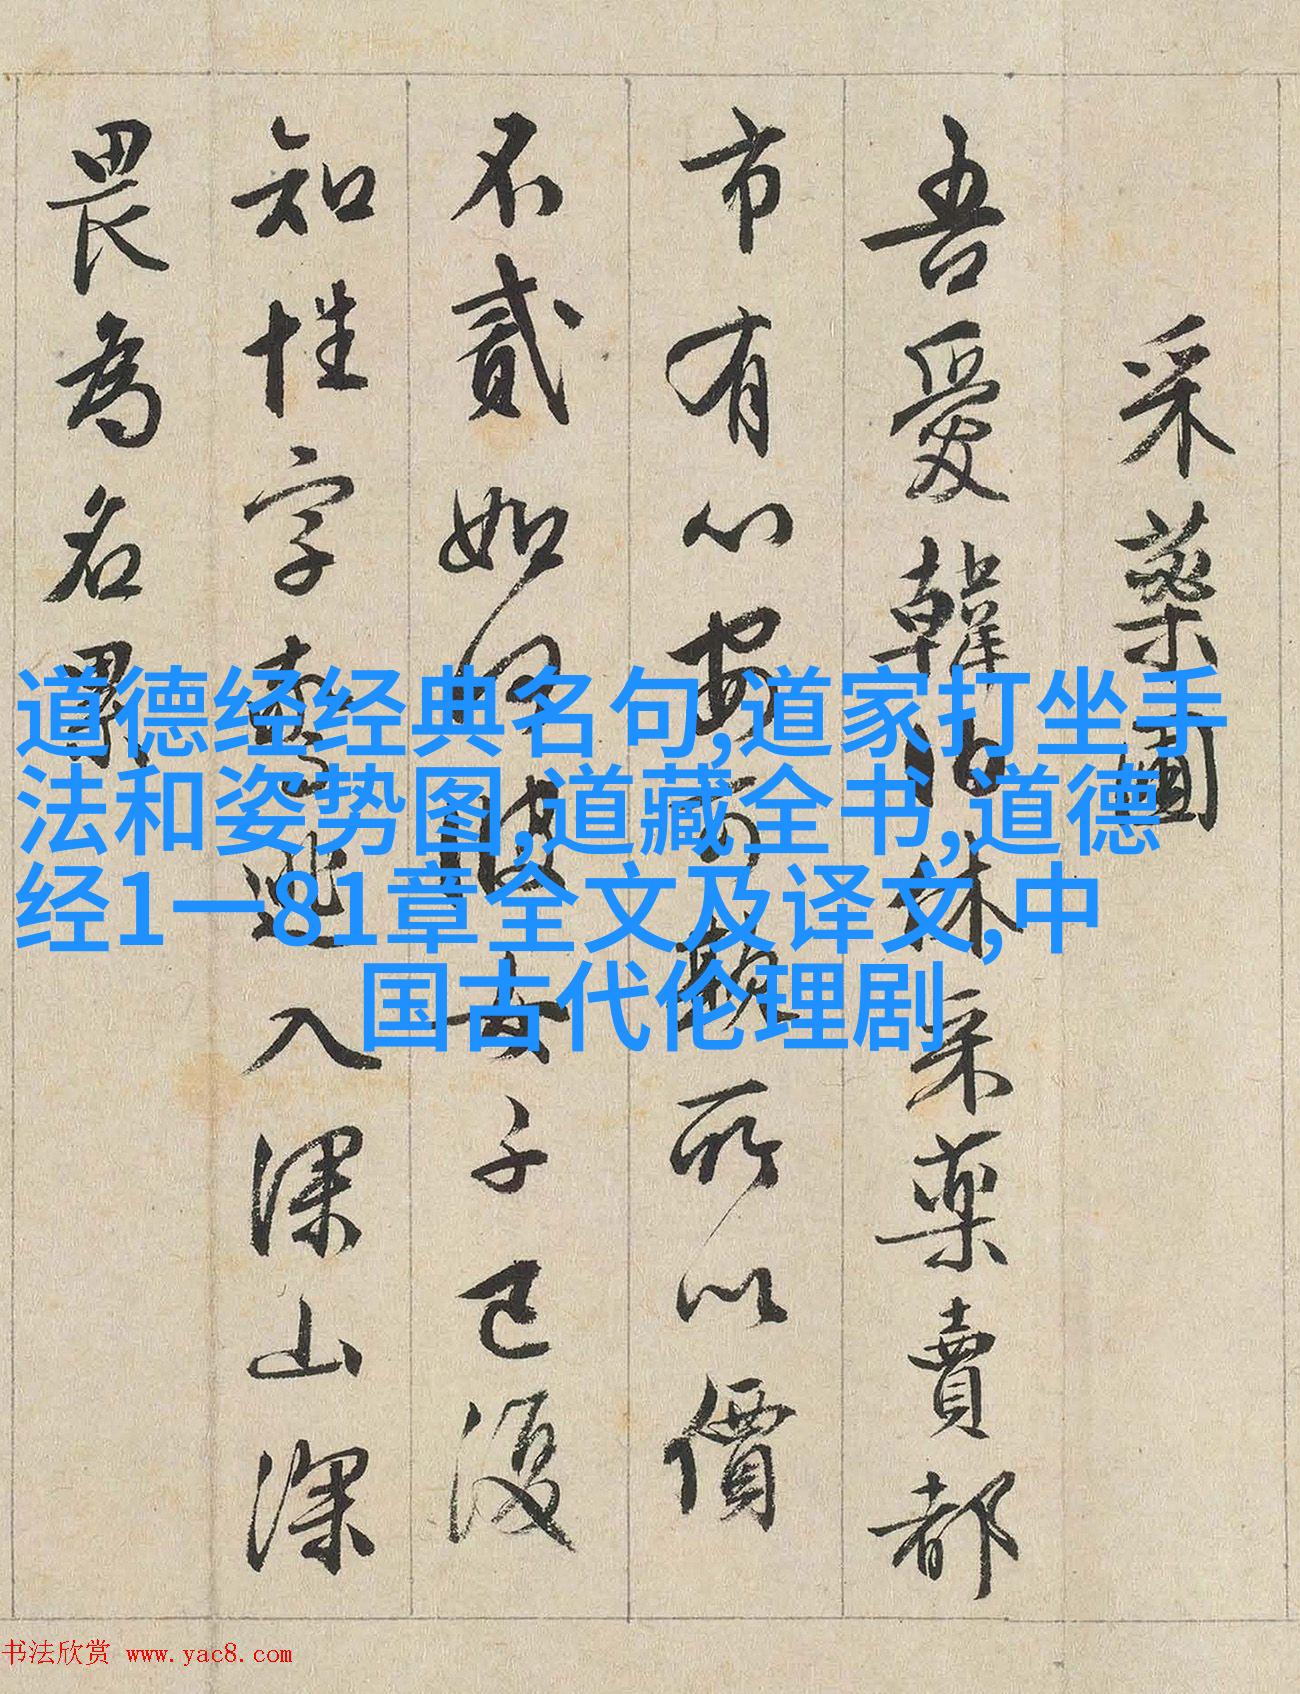 采藥圖
吾愛韓伯休采藥賣都
市有心安可所以價
不貳如何彼女子已復
知姓字驚逃入深山深
畏為名累
道德经经典名句,道家打坐手
法和姿势图,道藏全书,道德
经1一81章全文及译文,中
国古代伦理剧
书法欣赏 www.yac8.com